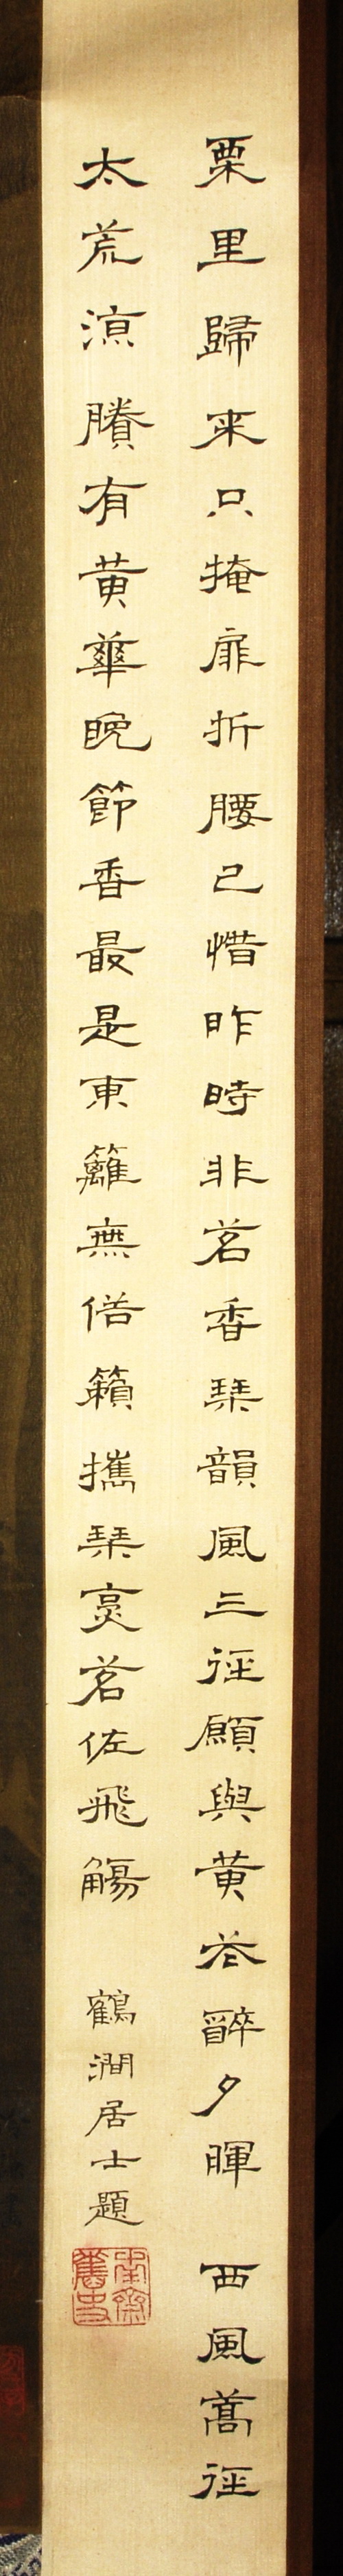 栗里歸来只掩扉折腰已惜昨時非茗香琹韻風三徑願與黄花醉夕暉 西風蒿徑
太荒涼賸有黄華晚節香最是東籬無俗籟攜琹烹茗佐飛觴 鶴澗居士題
南齋舊史